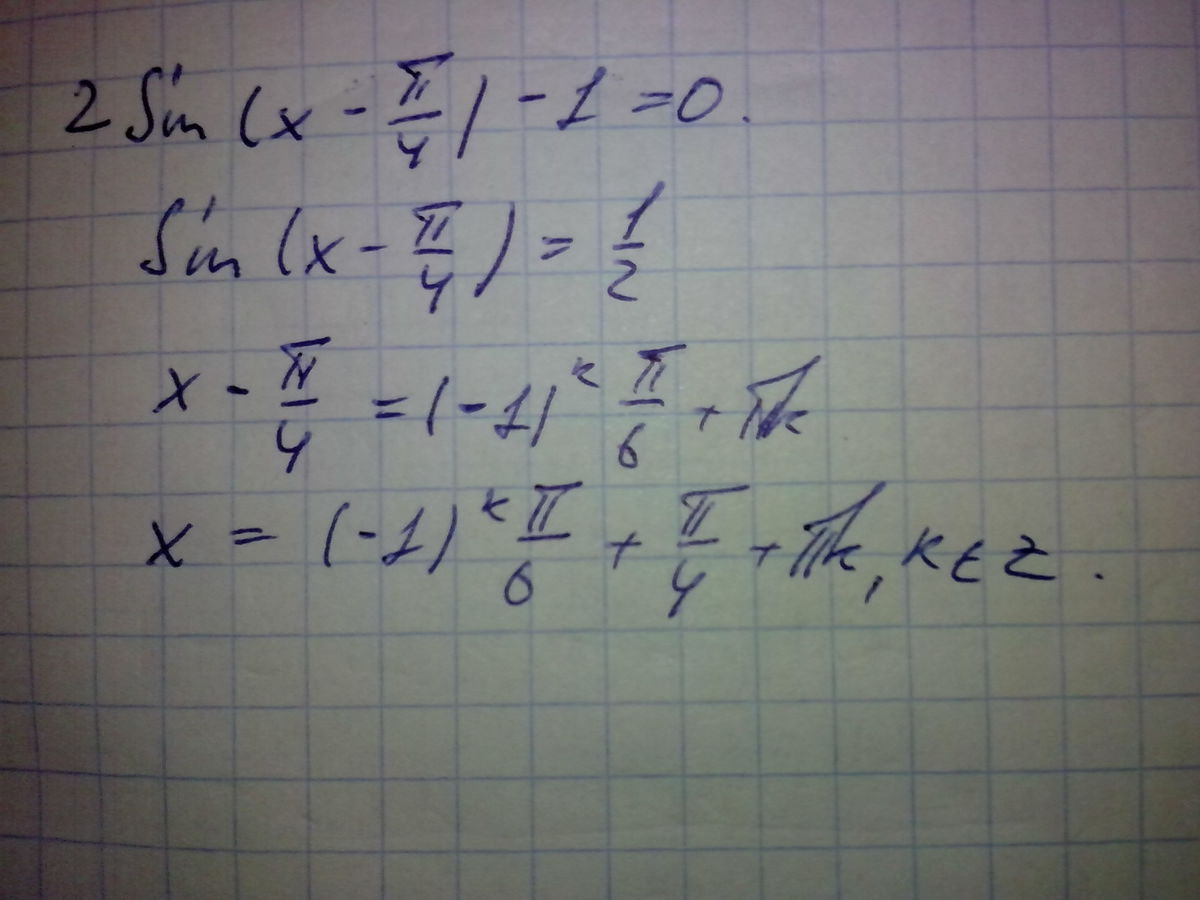 2 Sin (x - π/4) - 1 = 0.
Sin (x - π/4) = 1/2
x - π/4 = (-1)^k π/6 + πk
x = (-1)^k π/6 + π/4 + πk, k ∈ z.